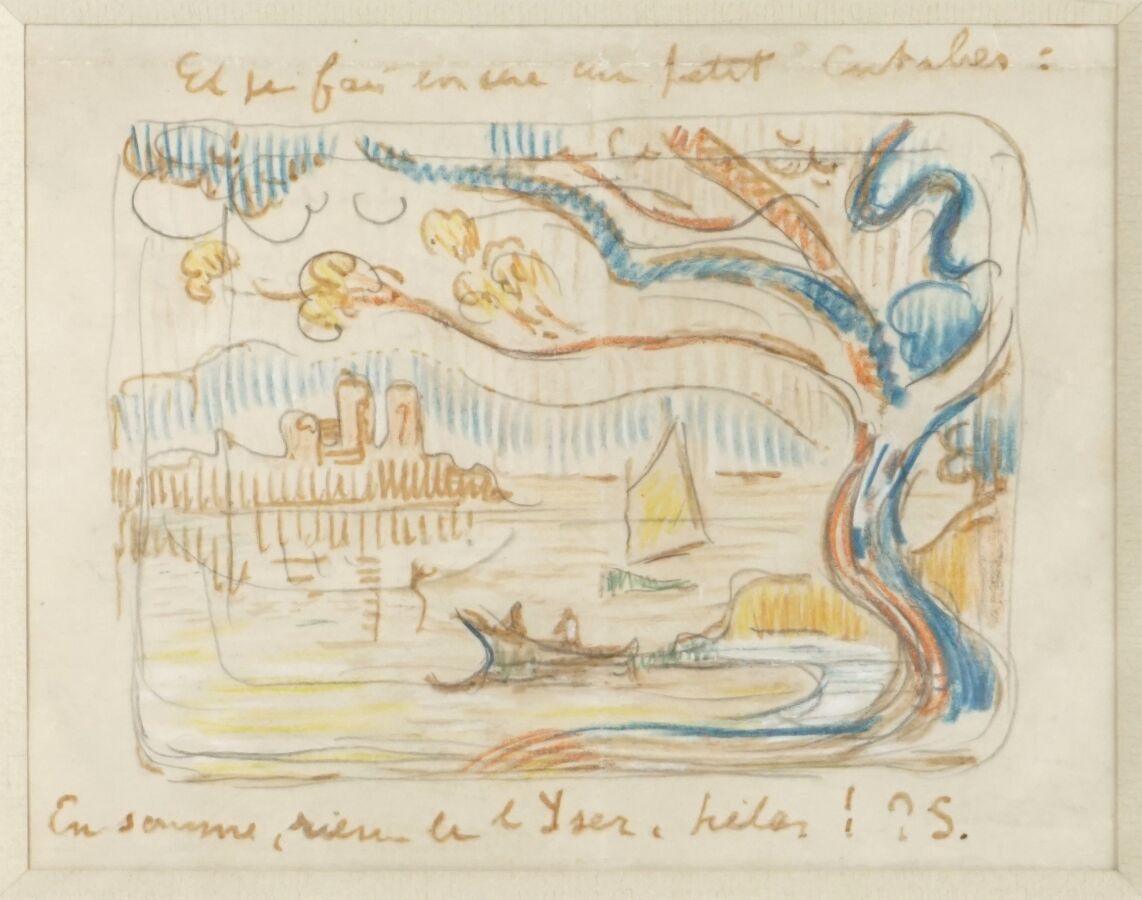 Et je fais encore un petit Antibes :
En somme, rien de l'Yser, hélas ! P.S.